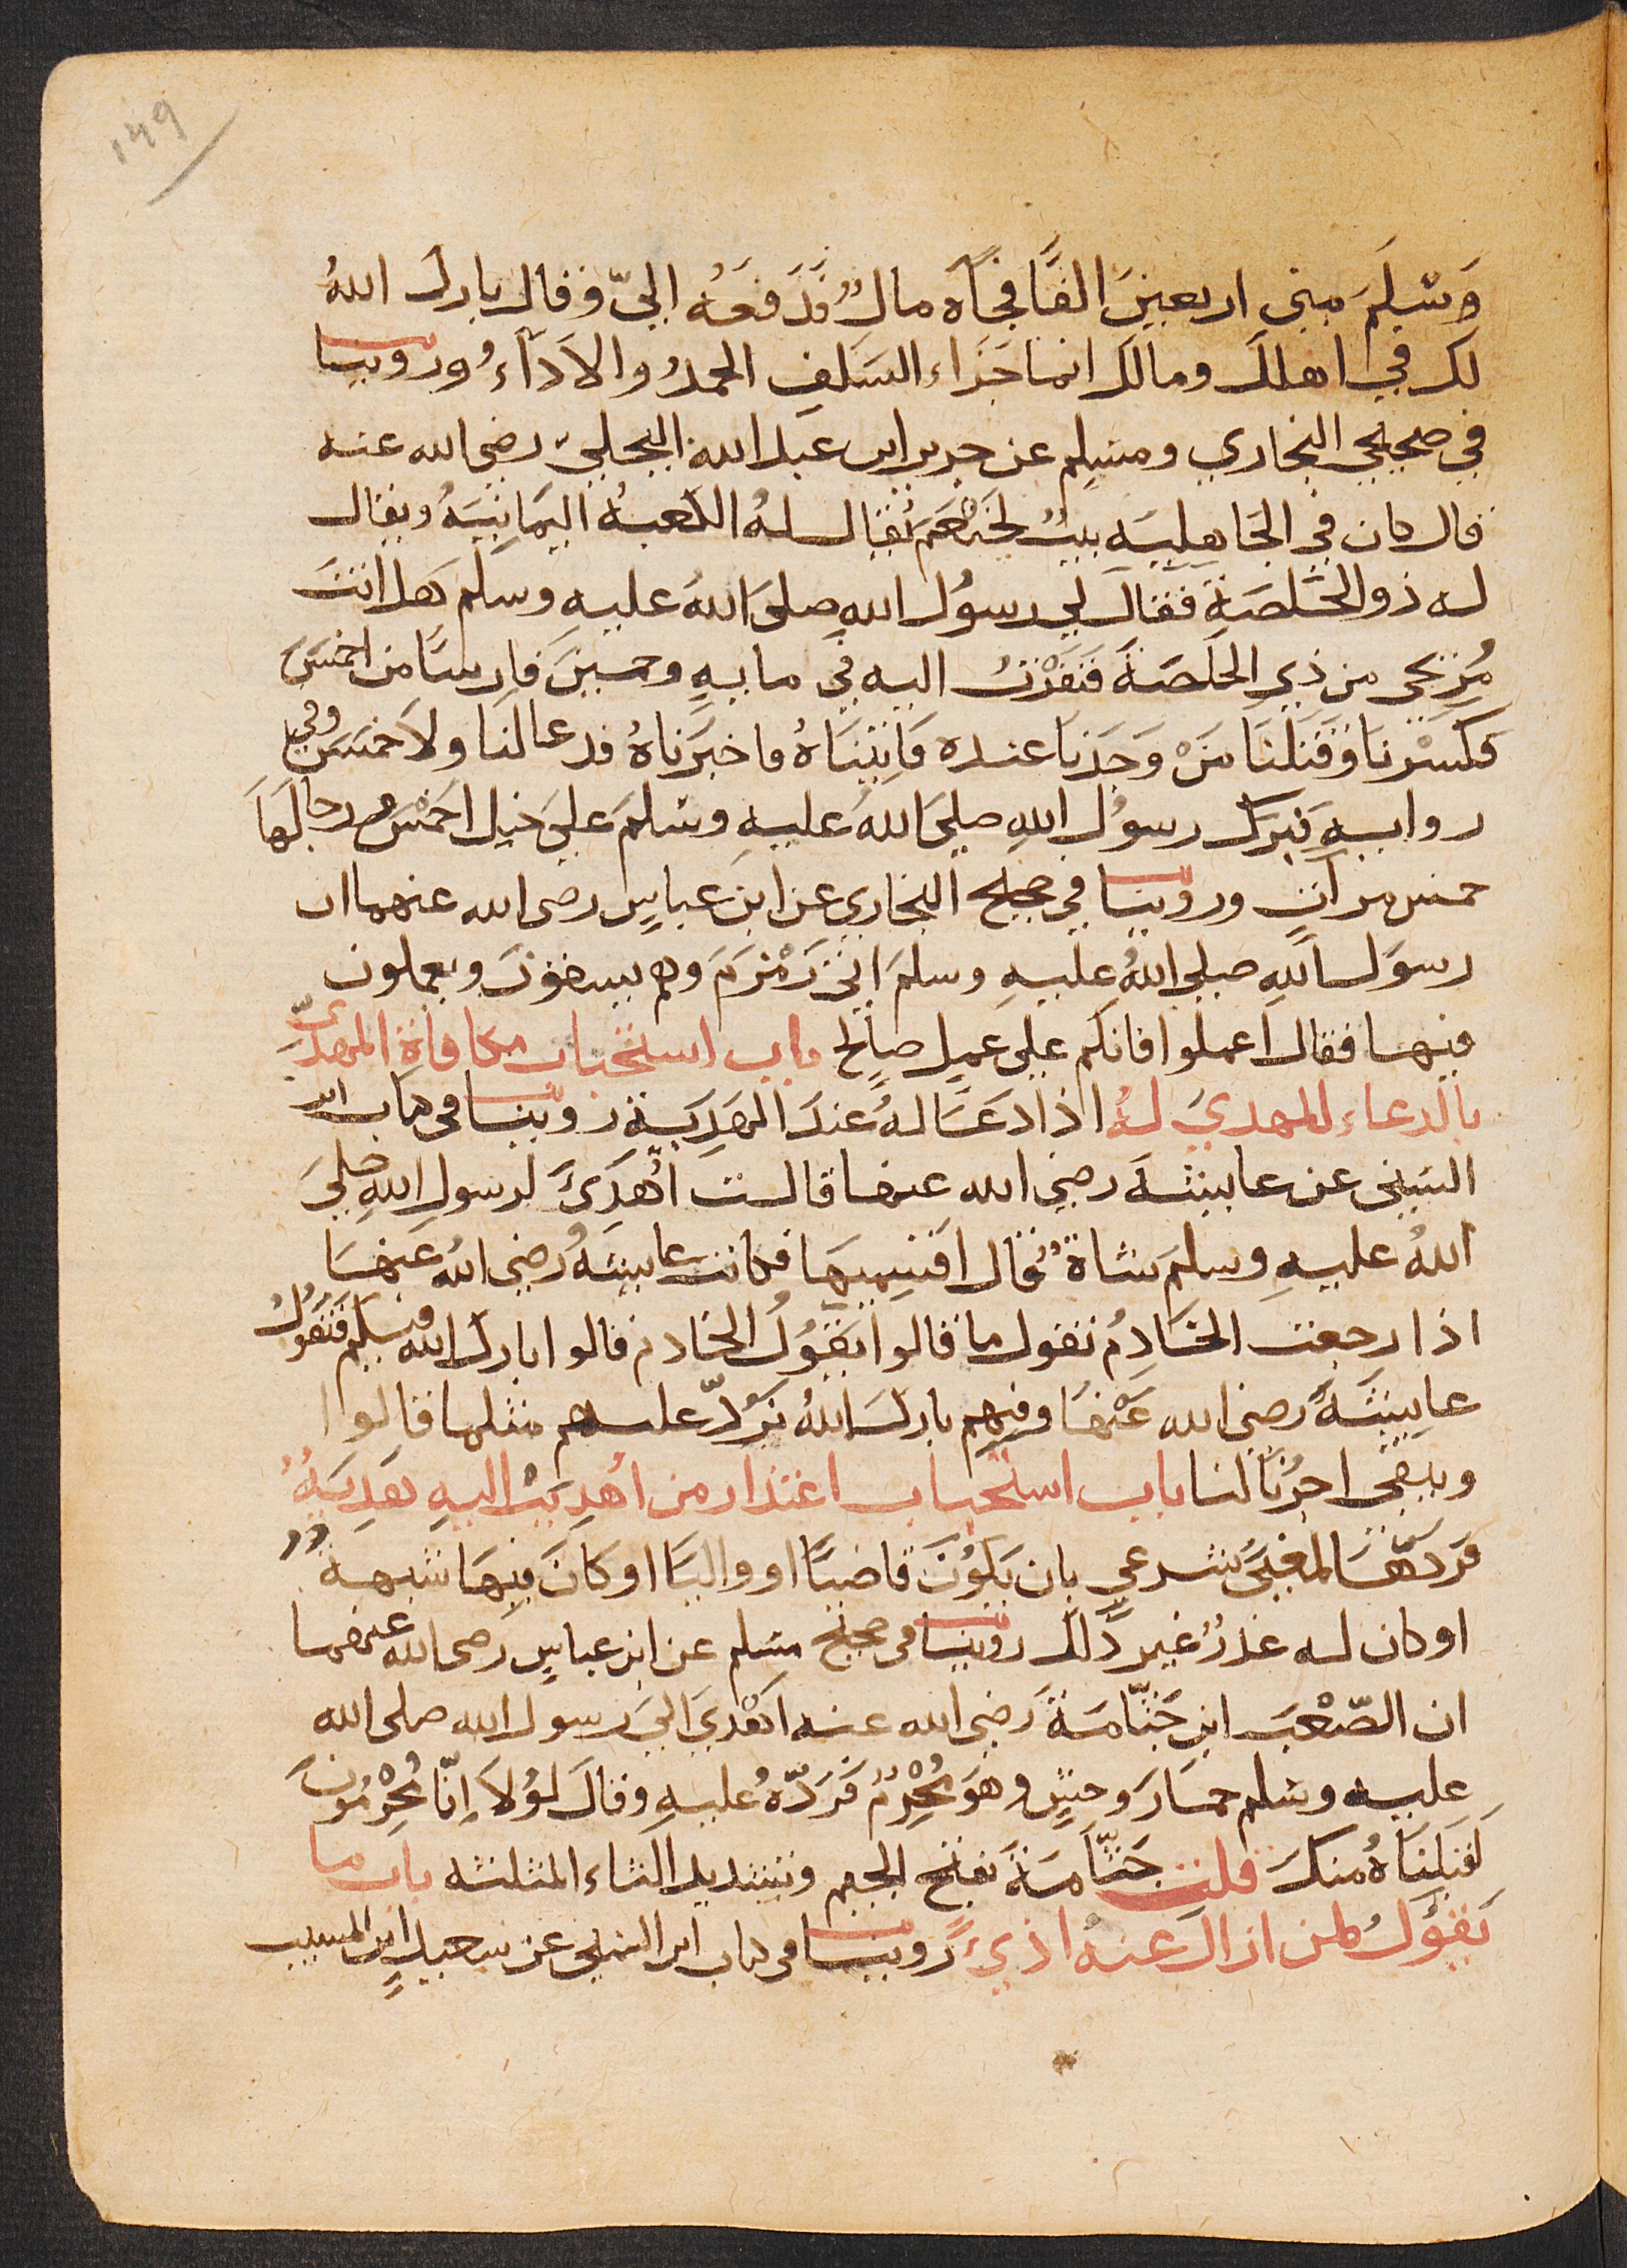 ١٤٩
وَسَلَّمَ مني اربعينَ الفًا فجَآه مالٌ فَدَفعَه اليّ وقال بارك اللهُ
لكَ في اهلكَ ومالكَ انما جَزَاء السَلَفِ الحمدُ والادَآءُ وروينا
في صحيحي البخاري ومسلمٍ عن جرير ابن عبد الله البجليّ رضي الله عنه
قال كان في الجَاهِلِيَه بيتٌ لخَثعَم يُقَال لهُ الكعبةُ اليمَانِيَةُ ويقال
له ذو الخَلَصَةِ فقال لي رسولُ اللهِ صلى اللهُ عليهِ وسلم هل انتَ
مُرِيحي من ذي الخَلَصَةَ فَنَفَرْتُ اليه في مايةٍ وخمسينَ فَارسًا من احمَسَ
فكسَرْنا وَقَتَلنَا مَنْ وَجَدنا عنده فَاتيْنَاهُ فاخبَرناهُ فدعا لنَا ولاحمَسَ وفي
روايةٍ فبرَّك رسولُ اللهِ صلى اللهُ عليهِ وسلمَ على خيل احمَسْ ورجالهَا
خمس مراتٍ وروينا في صحيح البخاري عن ابن عباسٍ رضى الله عنهما ان
رسولَ اللهِ صلى اللهُ عليهِ وسلمَ اتى زَمْزمَ وهم يسقونَ ويعملون
فيها فقال اعملوا فانكم على عملٍ صالح باب استحباب مكافاة المهدى
بالدعاء للمهديَ لهُ اذا دعَا لهُ عندَ الهَدِيَةِ روينا في كتاب ابن
السني عن عايشةَ رضي الله عنها قالت اُهْدِيَتَ لرسولِ اللهِ صلى
اللهُ عليهِ وسلمَ شاةٌ قال اقسِميهَا فكانت عايشةُ رضي اللهُ عنهَا
اذا رجعت الخَادِمُ تقول ما قالوا تقولُ الخادم قالوا بارك الله فيكم فتقولُ
عايشةُ رضى الله عَنها وفيهِم باركَ اللهُ نرُدّ عليهم مثلها قالوا
ويبقى اجرُنَا لنا باب استحباب اعتذار من اُهدِيَت اليهِ هَدِيَةٌ
فرَدَّهَا لمعْنَى شرعي بان يَكُونَ قاضيًا او واليًا او كانَ فيهَا شبهةٌ
او كان له عذرٌ غير ذلك روينا في صحيح مسلم عن ابن عباسٍ رضى الله عنهما
ان الصّعْبَ ابن جَثَّامَةَ رَضي الله عنه اَهْدَي اليَ رسول الله صلى الله
عليه وسلم حمَارَ وحشٍ وهوَ مُحْرمٌ فَرَدّهُ عليهِ وقالَ لوْلاَ اِنَّا مُحْرِمُونَ
لَقبِلنَاهُ منكَ قلت جَثَّامَةَ بفتح الجيم وتشديد الثاء المثلثه باب ما
يَقُولُ لمن ازالَ عنهُ اذيً روينا في كتاب ابن السني عن سعيدٍ ابن المسيب